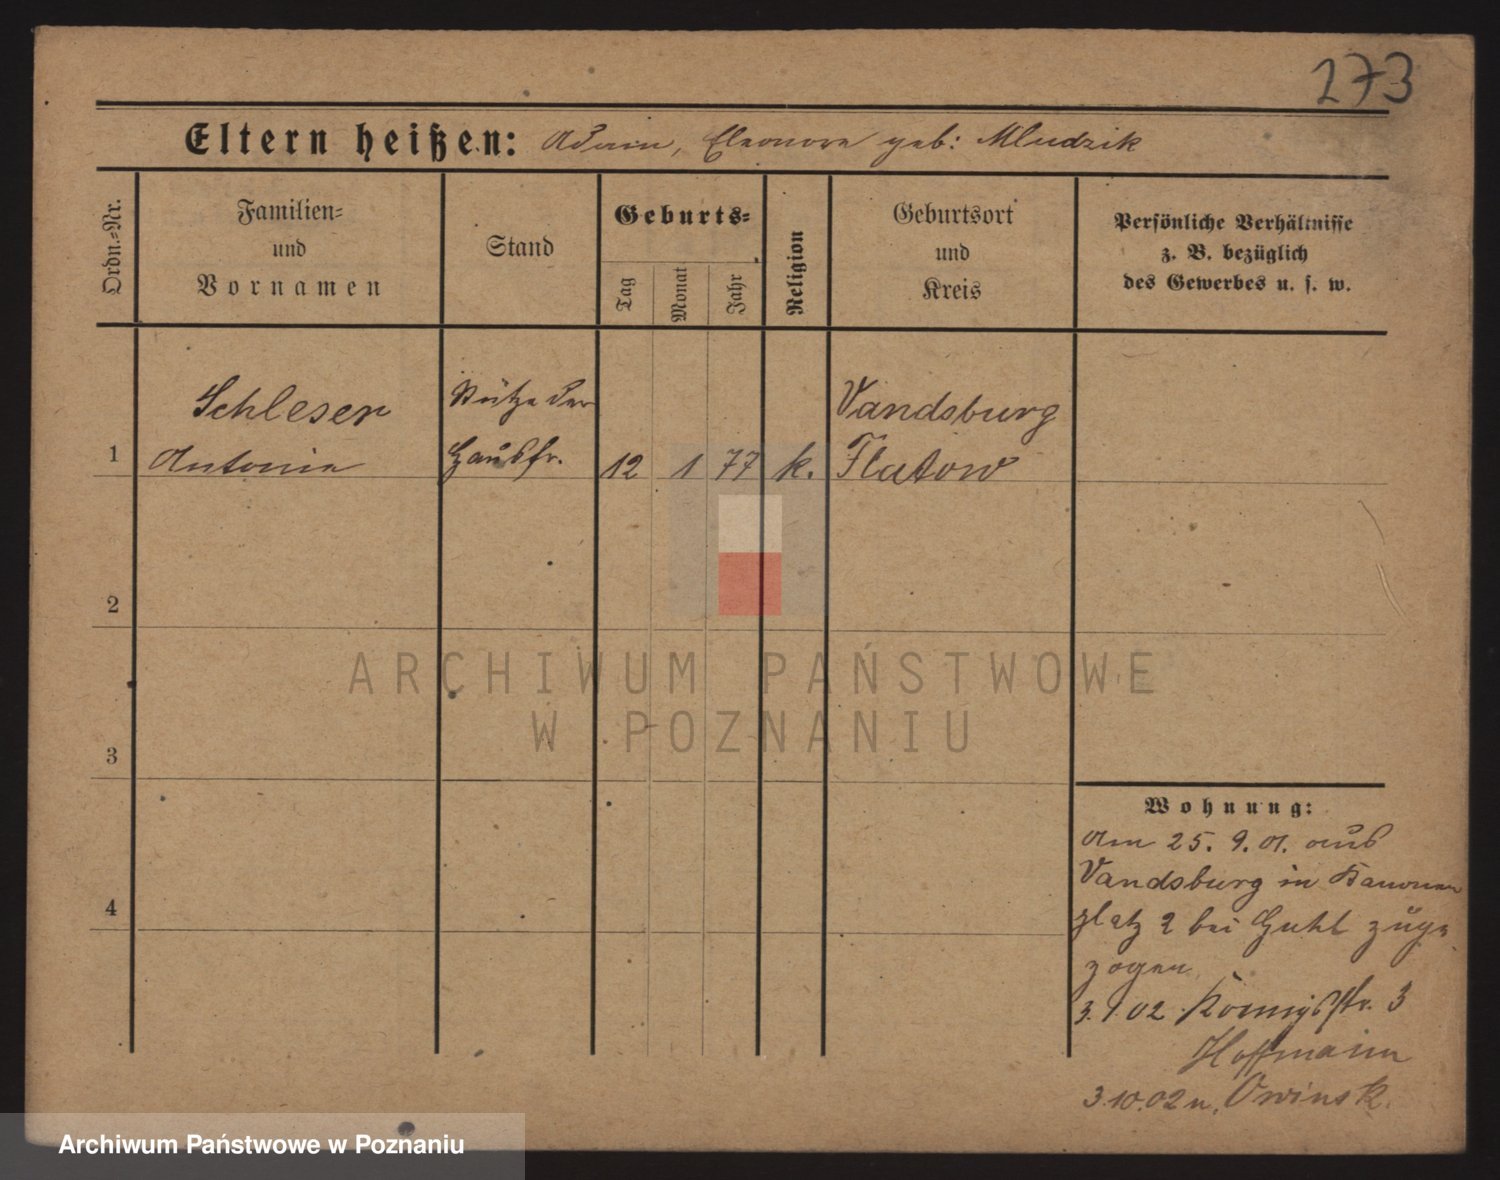 273
Eltern heißen: Adam, Eleonore geb: Mludzik
Ordn.-Nr.
Familien-
und
Vornamen
Stand
Geburts-
Tag
Monat
Jahr
Religion
Geburtsort
und
Kreis
Persönliche Verhältnisse
z. B. bezüglich
des Gewerbes u. s. w.
Schleser Stütze der Vandsburg
1 Antonie Hausfr. 12 1 77 k. Flatow
2
3
4
Wohnung:
Am 25. 9. 01. aus
Vandsburg in Kanonen
platz 2 bei Guhl zuge
zogen
3. 1 02 Königsstr. 3
Hoffmann
3.10.02 n. Owinsk.
ARCHIWUM PAŃSTWOWE
W POZNANIU
Archiwum Państwowe w Poznaniu